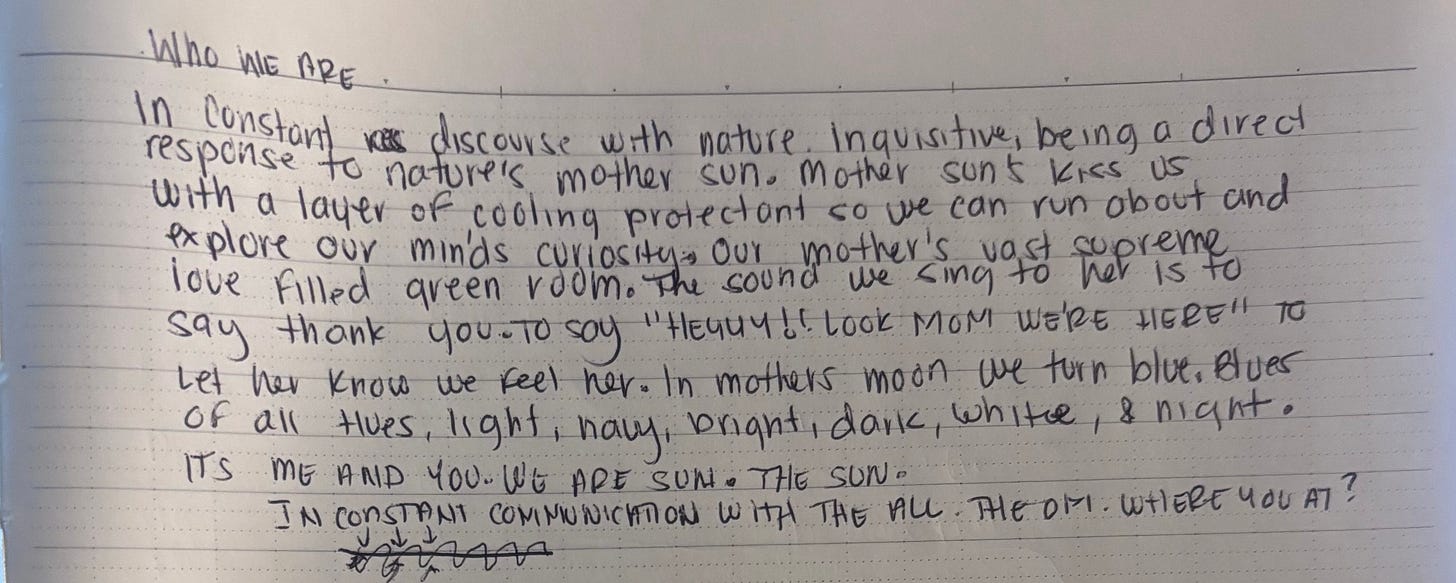 Who WE ARE.
In Constant discourse with nature. Inquisitive, being a direct
response to nature's mother sun. Mother sun's kiss us
with a layer of cooling protectant so we can run about and
explore our mind's curiosity. Our mother's vast supreme
love filled green room. The sound we sing to her is to
say thank you. To say "HEYYY!! LOOK MOM WE'RE HERE" TO
Let her know we feel her. In mothers moon we turn blue. Blues
of all Hues, light, navy, bright, dark, white, & night.
ITS ME AND YOU. WE ARE SUN. THE SUN.
IN CONSTANT COMMUNICATION WITH THE ALL. THE WHERE YOU AT?